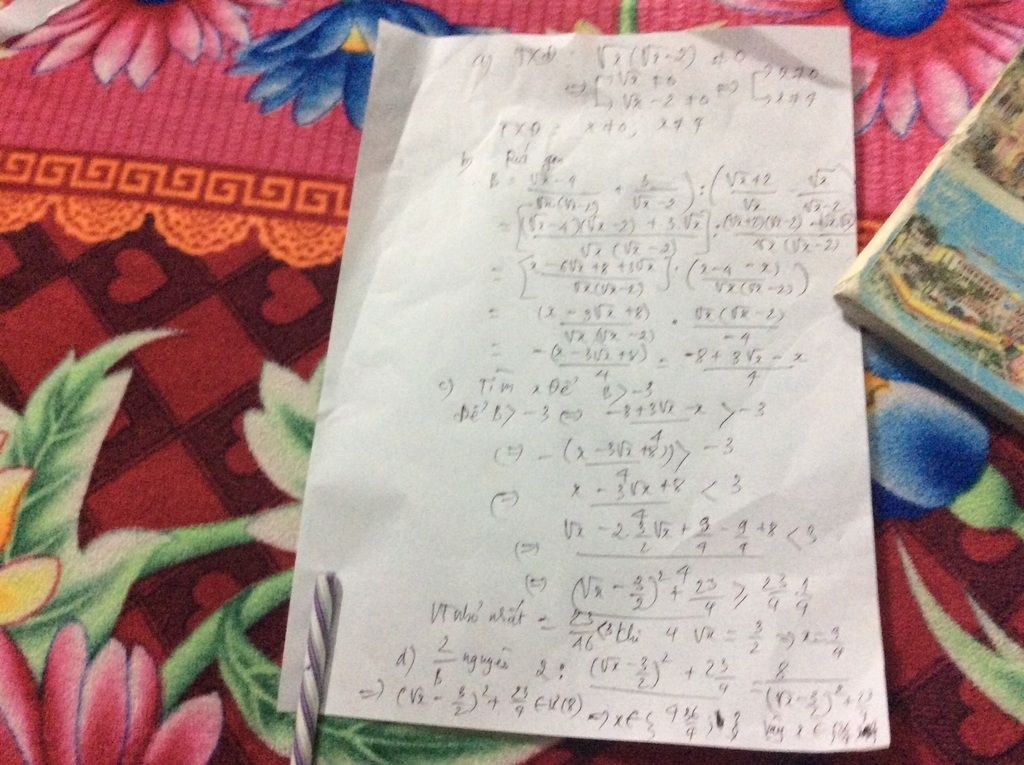 a) TXĐ : √x (√x-2) ≠ 0
⇔ [ √x ≠ 0 ⇔ [ x ≠ 0
√x - 2 ≠ 0 x ≠ 4
TXĐ = x ≠ 0, x ≠ 4
b) Rút gọn
B = (√x-4 / √x(√x-2) + 3 / √x-2) : (√x+2 / √x - √x / √x-2)
= [(√x-4)(√x-2) + 3√x / √x(√x-2)] : (√x+2)(√x-2) - √x.√x / √x(√x-2)
= [x - 6√x + 8 + 3√x / √x(√x-2)] : (x-4-x / √x(√x-2))
= (x - 3√x + 8) / √x(√x-2) . √x(√x-2) / -4
= -(x-3√x+8) / 4 = -8+3√x-x / 4
c) Tìm x Để B > -3
Để B > -3 ⇔ -8+3√x-x / 4 > -3
⇔ -(x-3√x+8) / 4 > -3
⇔ x - 3√x+8 / 4 < 3
⇔ √x - 2.3/2 √x + 9/4 - 9/4 + 8 / 4 < 3
⇔ (√x - 3/2)² + 23/4 / 4 ≥ 23/4 . 1/4
VT nhỏ nhất = 23/16 < 3 thì √x = 3/2 ⇒ x = 9/4
d) 2/B nguyên 2 : (√x - 3/2)² + 23/4 / 4 = 8 / (√x - 3/2)² + 23
⇒ (√x - 3/2)² + 23/4 ∈ Ư(8) ⇒ x ∈ { Vậy x ∈